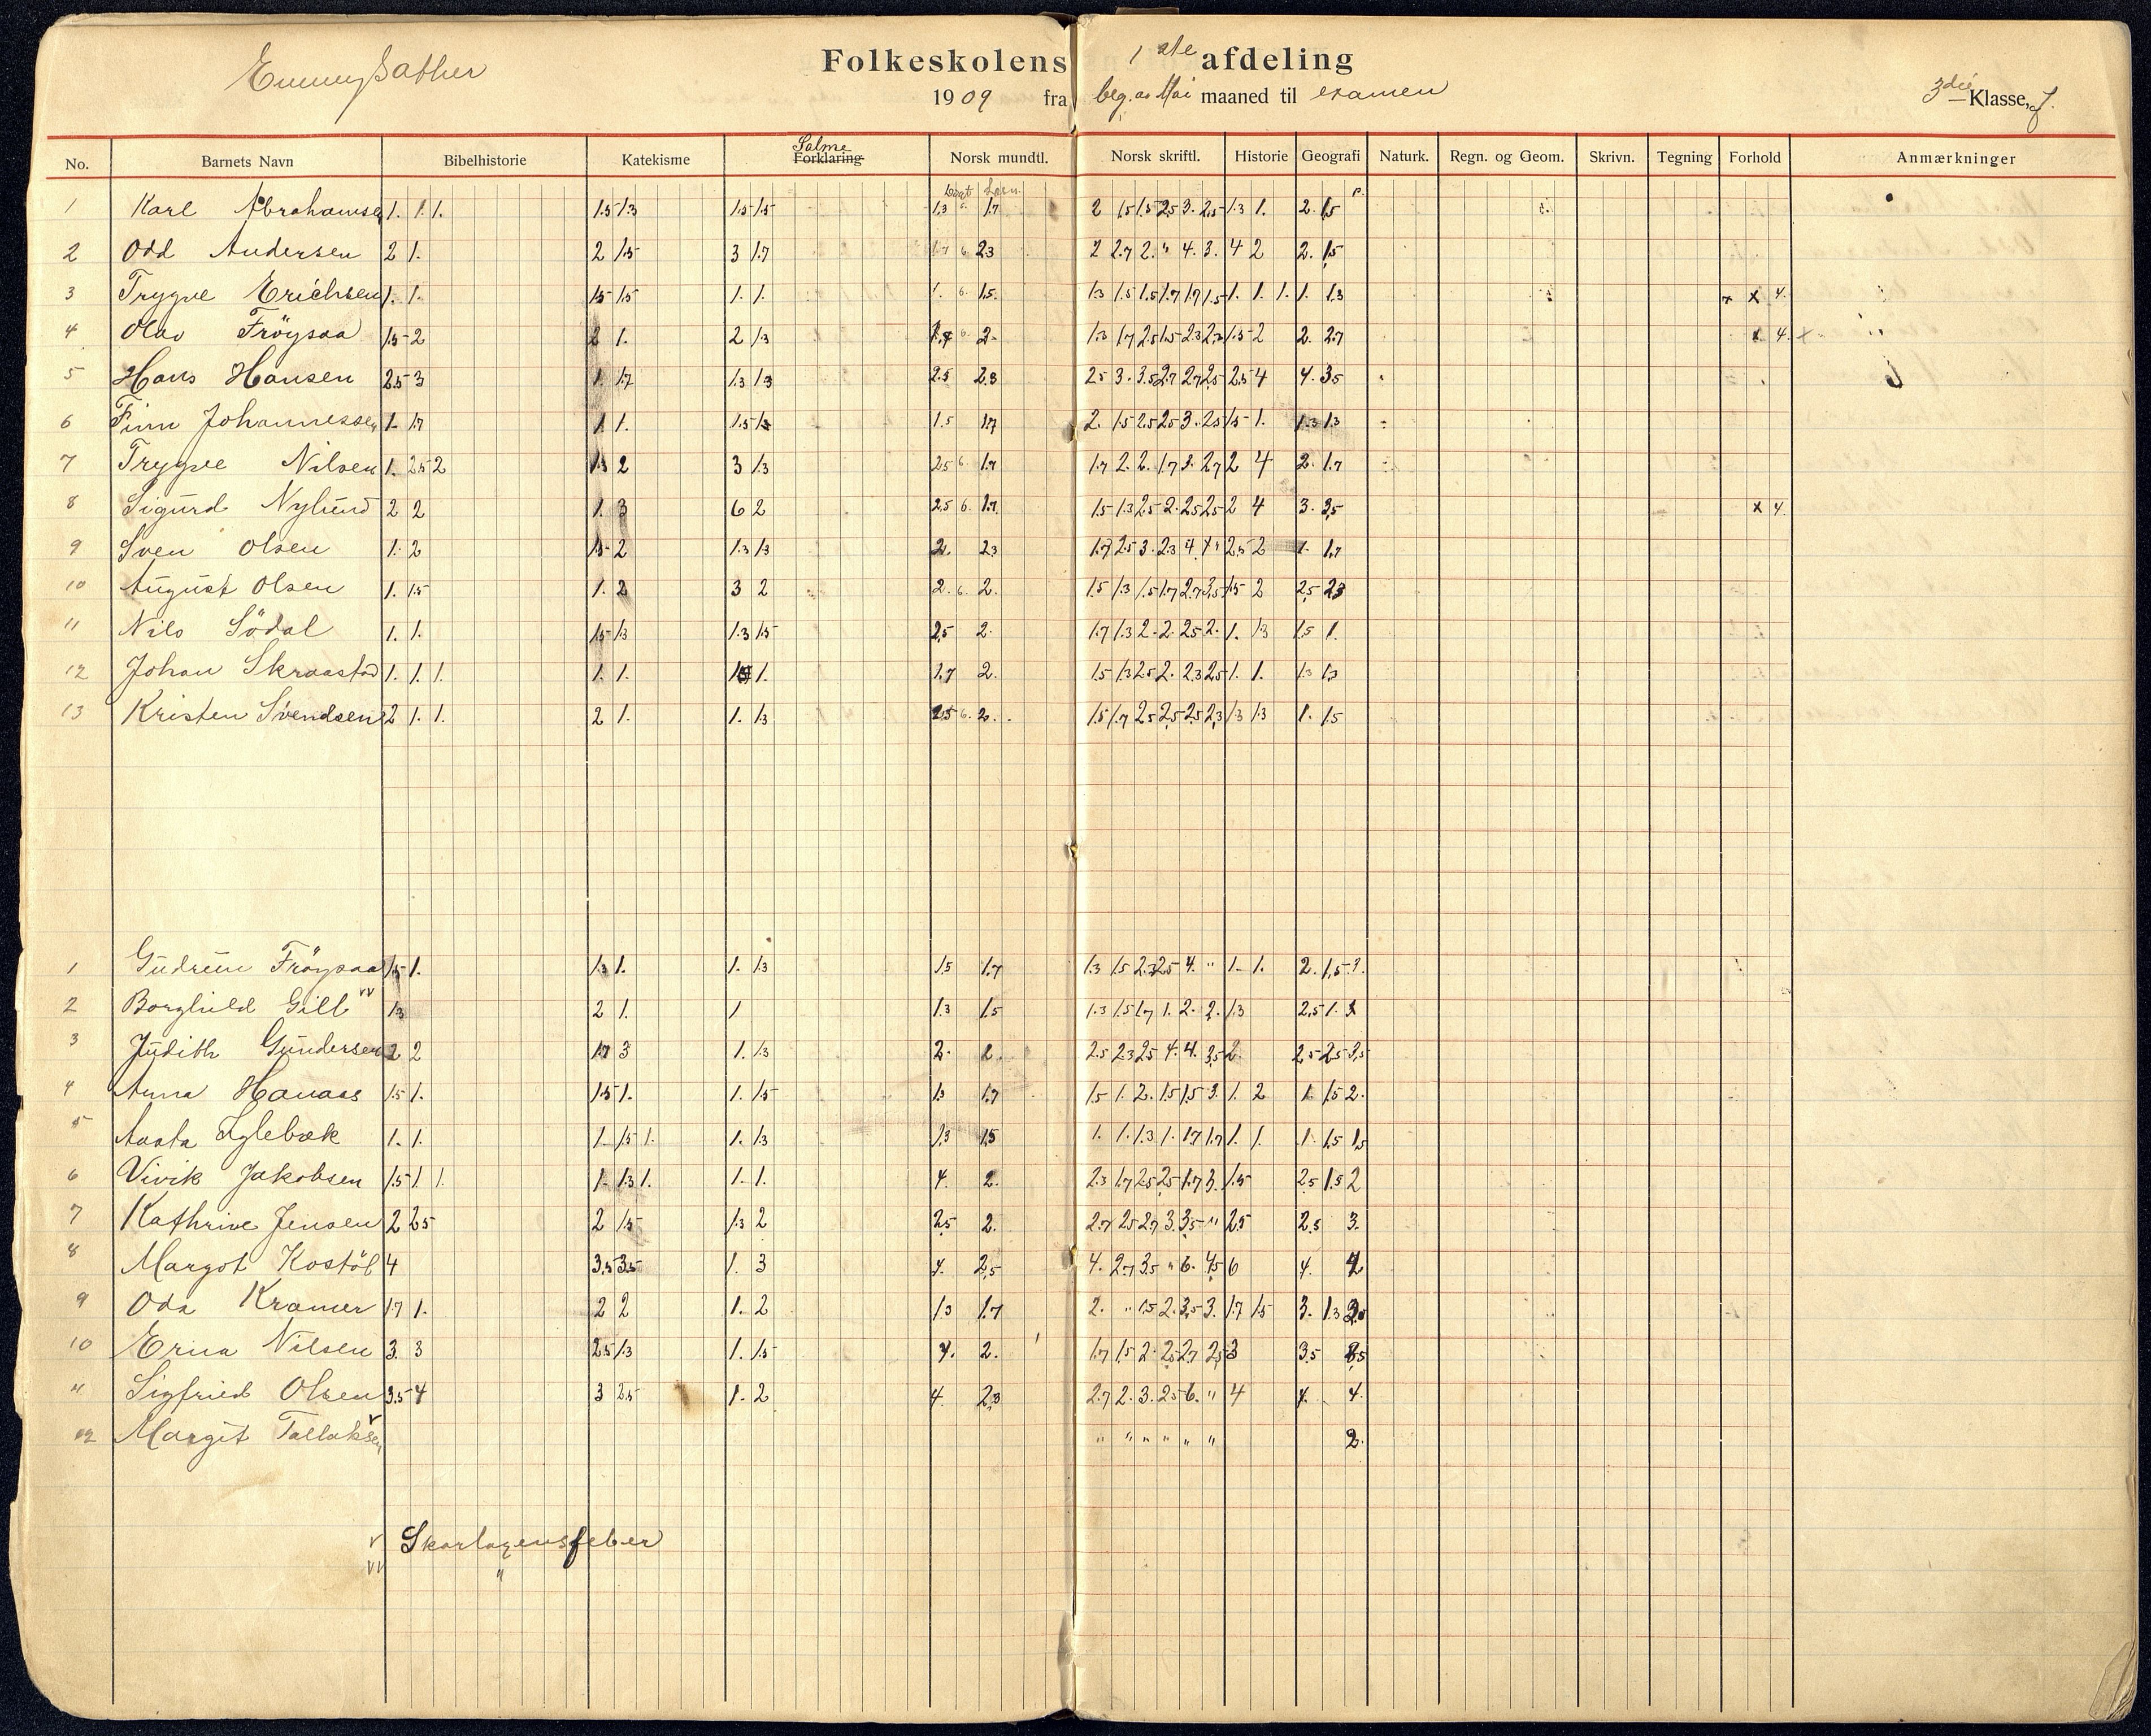 Emmy Sather Folkeskolens 1ste afdeling
1909 fra beg. av Mai maaned til examen 3die Klasse,
No. Barnets Navn Bibelhistorie Katekisme Salme Forklaring Norsk mundtl. Norsk skriftl. Historie Geografi Naturk. Regn. og Geom. Skrivn. Tegning Forhold Anmærkninger
1 Karl Abrahamsen 1. 1. 1. 1.5 1.3 1.5 1.5 1.3 1.7 2 1.5 1.5 2.5 3. 2.5 1.3 1. 2. 1.5
2 Odd Andersen 2 1. 2 1.5 3 1.7 1.7 6. 2.3 2 2.7 2. " 4. 3. 4 2 2. 1.5
3 Trygve Erichsen 1. 1. 1.5 1.5 1. 1. 1. 6. 1.5 1.3 1.5 1.5 1.7 1.7 1.5 1. 1. 1. 1. 1.3 x x 4.
4 Olav Fröysaa 1.5 2 2 1. 2 1.3 6. 2. 1.3 1.7 2.5 1.5 2.3 2.3 1.5 2 2. 2.7 x 4. x
5 Hans Hansen 2.5 3 1. 1.7 1.3 1.3 2.5 2.3 2.5 3. 3.5 2.7 2.7 2.5 2.5 4 4. 3.5
6 Finn Johannessen 1. 1.7 1 1. 1.5 1.3 1.5 1.7 2. 1.5 2.5 2.5 3. 2.5 1.5 1. 1.3 1.3
7 Trygve Nilsen 1. 2.5 2 1.3 2 3 1.3 2.5 6. 1.7 1.7 2. 2. 1.7 3. 2.7 2 4 2. 1.7
8 Sigurd Nylund 2 2 1. 3 6 2 2.5 6. 1.7 1.5 1.3 2.5 2. 2.5 2.5 2 4 3. 3.5 x 4.
9 Sven Olsen 1. 2 1.5 2 1.3 1.3 2. 2.3 1.7 2.5 3. 2.3 4 4 " 2.5 2 1. 1.7
10 August Olsen 1. 1.5 1. 2 3 2 2. 6. 2. 1.5 1.3 1.5 1.7 2.7 3.5 1.5 2 2.5 2.3
11 Nils Södal 1. 1. 1.5 1.3 1.3 1.5 2.5 2. 1.7 1.3 2. 2. 2.5 2. 1. 1.3 1.5 1.
12 Johan Skraastad 1. 1. 1. 1. 1. 1. 1.7 2. 1.5 1.3 2.5 2. 2.3 2.5 1. 1. 1.3 1.3
13 Kristen Svendsen 2 1. 1. 2 1. 1. 1.3 2.5 6. 2. 1.5 1.7 2.5 2.5 2.5 2.3 1.3 1.3 1. 1.5
1 Gudrun Fröysaa 1.5 1. 1.3 1. 1. 1.3 1.5 1.7 1.3 1.5 2.3 2.5 4. " 1. 1. 2. 1.5 3.
2 Borghild Gill vv 1.3 2 1. 1 1.3 1.5 1.3 1.5 1.7 1. 2. 2. 1.3 2.5 1.
3 Judith Gundersen 2 2 1.7 3 1. 1.3 2. 2. 2.5 2.3 2.5 4. 4. 3.5 2. 2.5 2.5 3.5
4 Anna Hanaas 1.5 1. 1.5 1. 1. 1.5 1.3 1.7 1.5 1. 2. 1.5 1.5 3. 1. 2 1. 1.5 2.
5 Aasta Iglebæk 1. 1. 1. 1.5 1. 1. 1.3 1.3 1.5 1. 1. 1.3 1. 1.7 1.7 1. 1. 1. 1.5 1.5
6 Vivik Jakobsen 1.5 1. 1. 1. 1.3 1. 1. 1. 4. 2. 2.3 1.7 2.5 2.5 1.7 3. 1.5 2.5 1.5 2
7 Kathrine Jensen 2 2.5 2 1.5 1.3 2 2.5 2. 2.7 2.5 2.7 3. 3.5 " 2.5 2.5 3.
8 Margot Kostöl 4 3.5 3.5 1. 3 4. 2.5 4. 2.7 3.5 " 6. 4.5 6 4.
9 Oda Kramer 1.7 1. 2 2 1. 2 1.3 1.7 2. " 1.5 2. 3.5 3. 1.7 1.5 3. 1.3
10 Erna Nilsen 3. 3 2.5 1.3 1. 1.5 4. 2. 1.7 1.5 2. 2.5 2.7 2.5 3 3.5
11 Sigfried Olsen 3.5 4 3 2.5 1. 2 4. 2.3 2.7 2. 3. 2.5 6. " 4 4. 4.
12 Margit Tallaksen v " " " " " " 2.
v Skarlagensfeber
vv "